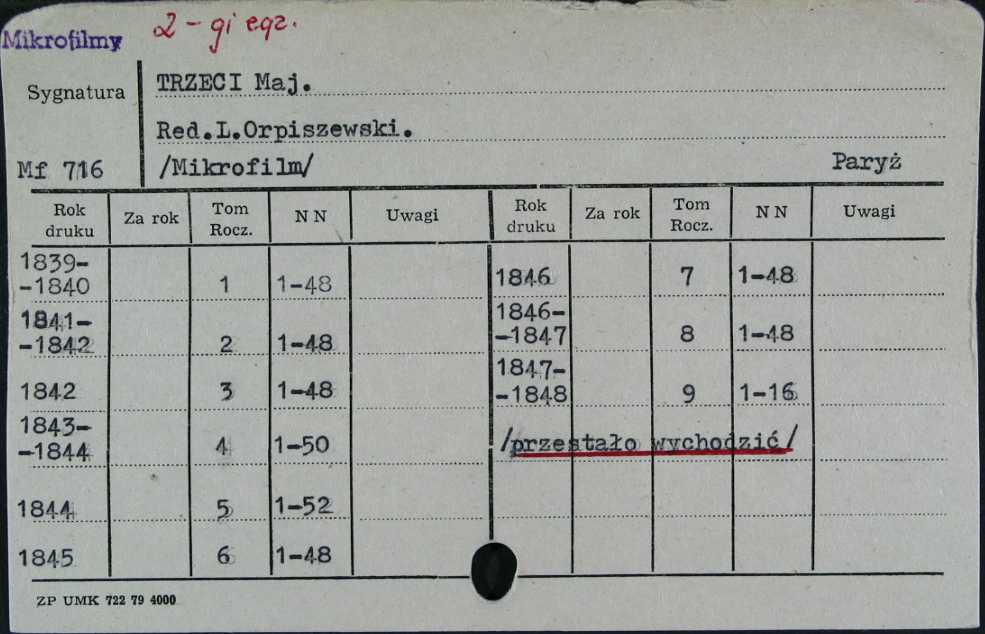 2-gi egz.
Mikrofilmy
Sygnatura TRZECI Maj.
Red.L.Orpiszewski.
Mf 716 /Mikrofilm/ Paryż
Rok druku Za rok Tom Rocz. N N Uwagi Rok druku Za rok Tom Rocz. N N Uwagi
1839-
-1840 1 1-48 1846 7 1-48
1841- 1846-
-1842 2 1-48 -1847 8 1-48
1847-
1842 3 1-48 -1848 9 1-16
1843-
-1844 4 1-50 /przestało wychodzić/
1844 5 1-52
1845 6 1-48
ZP UMK 722 79 4000